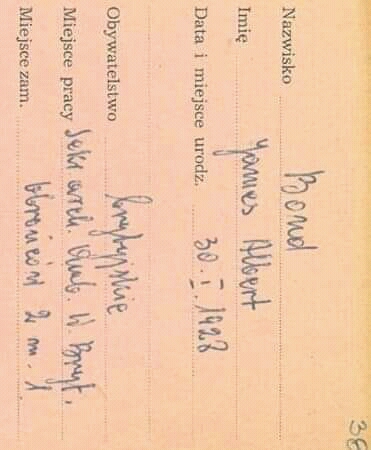 38
Nazwisko Bond
Imię James Albert
Data i miejsce urodz. 30.I.1928
Obywatelstwo brytyjskie
Miejsce pracy Sekr arch. Amb. W. Bryt.
Miejsce zam. Obrońców 2 m. 1